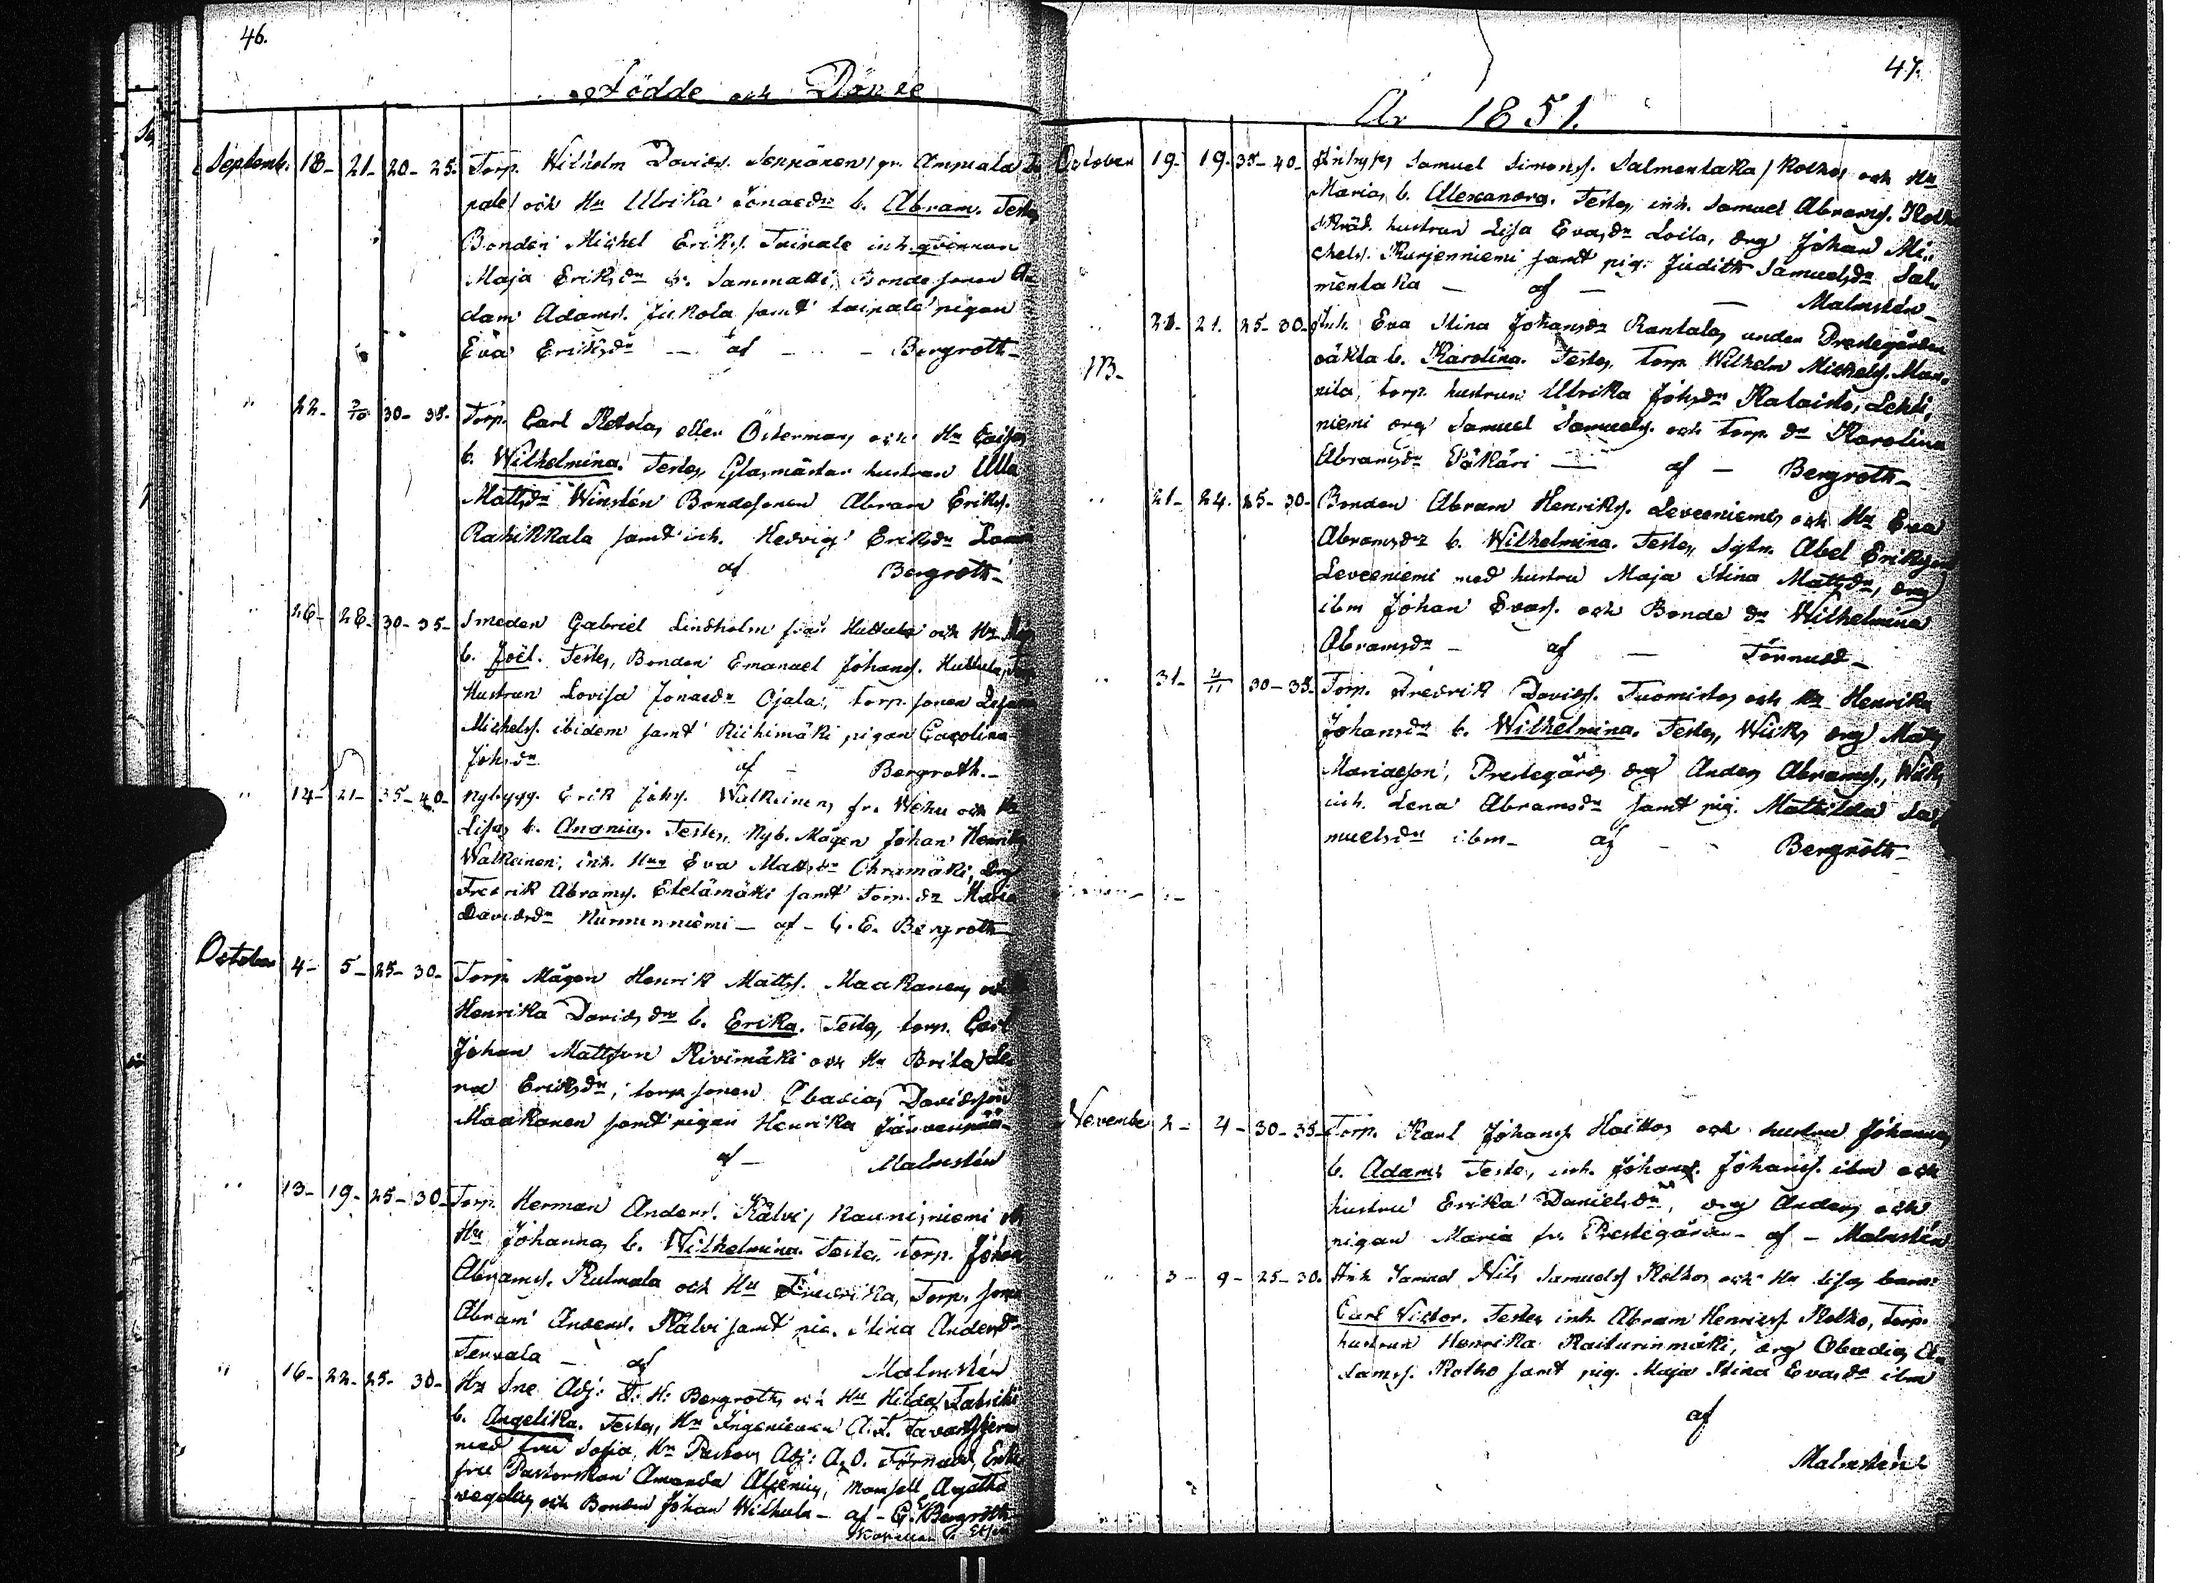 46.
Födde och Döpte
Septemb. 18- 21- 20-25. Torp. Wilhelm Davids. Seppänen, fr. Ampiala
pale/ och Hu Ulrika Jonaedr b. Abram. Testes
Bonden Michel Eriks. Taipale inh. qvinnan
Maja Eriksdr fr. Sammatti, Bonde sonen A
dam Adams. Jickola samt taipale pigan
Eva Eriksdr — af — Bergroth-
" 22- 2/10 30-35. Torp. Carl Ketola, eller Österman, och Hu
b. Wilhelmina. Testes, Glasmästar hustrun Ulla
Mattsdr Winstén Bondesonen Abram Eriks.
Rahikkala samt inh. Hedvig Eriksdr
af Bergroth-
" 26- 28- 30-35- Smeden Gabriel Lindholm från Huttula och Hu
b. Joël. Testes, Bonden Emanuel Johans. Huttula,
Hustrun Lovisa Jonaedr Ojala, torp. sonen
Michels. ibidem samt Riihimäki pigan Carolina
Johsdr af - Bergroth.-
" 14- 21- 35-40- Nybygg. Erik Johs. Walkeinen, fr. Wehu och Hu
Lisa, b. Ananias. Testes, Nyb. Mågen Johan Henriks
Walkeinen, inh. Hu Eva Mattsdr Ohramäki, Drg
Fredrik Abrams. Etelämäki samt Torp. dr Maria
Davidsdr Nurmenniemi — af - G. E. Bergroth
October 4- 5- 25-30- Torp. Mågen Henrik Matts. Maakanen, och
Henrika Davidsdr b. Erika. Testes, torp. Carl
Johan Mattsson Kivimäki och Hu Brita Le
na Eriksdr, torp. sonen Obadias Davidsson
Maakanen samt pigan Henrika Järvenpää-
af — Malmstén
" 13- 19- 25-30- Torp. Herman Anders. Kälvi, Kaunisniemi och
Hu Johanna, b. Wilhelmina. Testes, Torp. Johan
Abrams. Kulmala och Hu Fredrika, Torp. sonen
Abram Anders. Kälvi samt pig. Stina Andersdr
Tervala — af Malmstén
" 16- 22- 25-30- Hr Sne Adj: F: H: Bergroth, och Hu Hilda
b. Angelika. Testes, Hr Ingenieuren A. F. Tavaststjerna
med fru Sofia, Hr Pastors Adj: A. O. Törnudd, Enke
fru Pastorskan Amanda Alcenius, Mamsell Agatha
wegelius och Bonden Johan Wilhula — af - G. E. Bergroth
47.
År 1851.
October 19- 19- 35-40- Inhys, Samuel Simons. Salmentaka/Kolho, och Hu
Maria, b. Alexandra. Testes, inh. Samuel Abrams. Kolho
skräd. hustrun Lisa Evasdr Loila, drg Johan Mi-
chels. Kurjenniemi samt pig. Judith Samuelsdr Sal-
mentaka — af — — Malmstén-
" 21- 21. 25-30- Inh. Eva Stina Johansdr Rantala, under Prestegården
oäkta b. Karolina. Testes, torp. Wilhelm Michels. Man-
nila, torp. hustrun Ulrika Johsdr Kalaisto, Lehti
niemi drg Samuel Samuels. och torp. dr Karolina
Abramsdr Päkäri — af — Bergroth-
NB-
" 21- 24. 25-30- Bonden Abram Henriks. Leveeniemi, och Hu Eva
Abramsdr b. Wilhelmina. Testes, Sytn. Abel Eriksson
Leveeniemi med hustru Maja Stina Mattsdr, drg
ibm Johan Evas. och Bonde dr Wilhelmina
Abramsdr - af — Törnudd-
" 31- 2/11 30-35- Torp. Fredrik Davids. Tuomisto, och Hu Henrika
Johansdr b. Wilhelmina. Testes, Wiiks drg Matts
Mariaeson, Prestegårds drg Anders Abrams., Wiiks
inh. Lena Abramsdr samt pig. Mathilda Sa-
muelsdr ibm- af - - Bergroth-
November 2- 4- 30-35- Torp. Karl Johans. Haikko, och hustru Johanna
b. Adam. Testes, inh. Johan Johans. ibm och
hustru Erika Danielsdr, drg Anders och
pigan Maria fr. Prestegården - af - Malmstén
" 3- 9- 25-30. Inh Nils Samuels Kolho, och Hu Lisa, barn:
Carl Victor. Testes inh. Abram Henriks. Kolho, torp.
hustrun Henrika Raiturinmäki, drg Obadias
dams. Kolho samt pig. Maja Stina Evasdr ibm
af
Malmstén